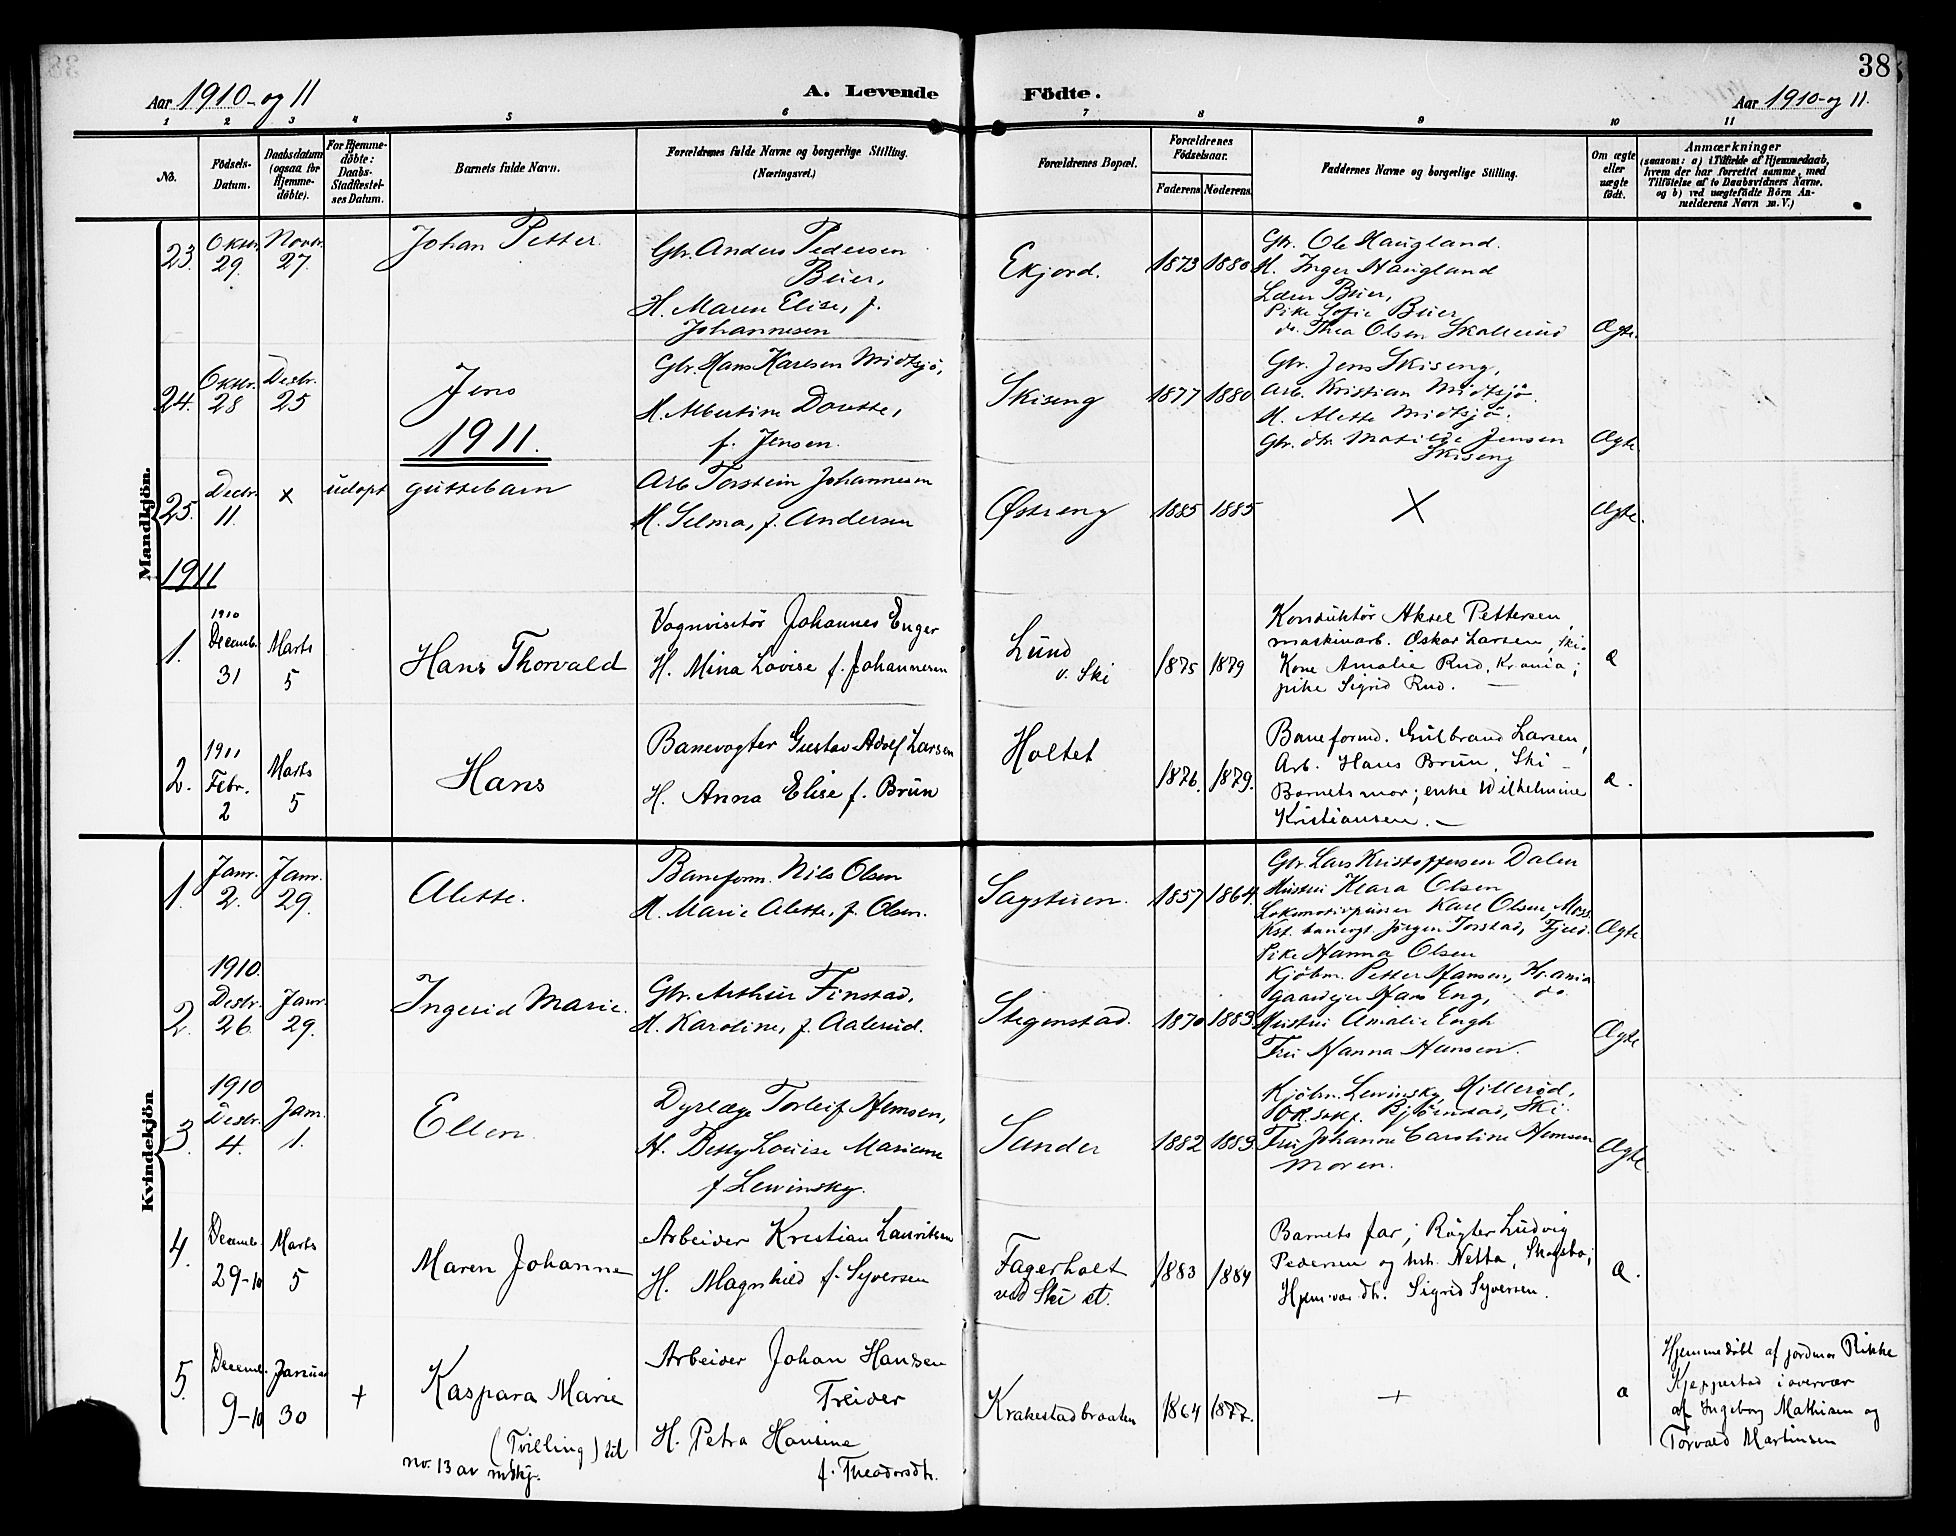 38
Aar 1910- og 11
A. Levende Födte.
Aar 1910- og 11.
1 2 3 4 5 6 7 8 9 10 11
No.
Födsels-Datum.
Daabsdatum (ogsaa for Hjemme-döbte).
For Hjemme-döbte: Daabs-Stadfæstel-ses Datum.
Barnets fulde Navn.
Forældrenes fulde Navne og borgerlige Stilling. (Næringsvei.)
Forældrenes Bopæl.
Forældrenes Födselsaar.
Faderens Moderens
Faddernes Navne og borgerlige Stilling.
Om ægte eller uægte födt.
Anmærkninger
(saasom: a) i Tilfælde af Hjemmedaab,
hvem der har forrettet samme, med
Tilföielse af to Daabsvidners Navne,
og b) ved uægtefödte Börn An-
melderens Navn m. V.)
Mandkjön.
23. Oktbr. 29. Novbr. 27.
Johan Petter.
Gbr. Anders Pedersen
Beier,
H. Maren Elise, f.
Johannesen
Ekjord.
1873 1880
Gbr. Ole Haugland.
H. Inger Haugland
Beier,
Pike Sofie Beier
do. Thea Olsen
Ægte.
24. Oktbr. 28 Desbr. 25
Jens
Gbr. Hans Karlsen Midtsjö,
H. Albertine Dorette,
f. Jensen.
Skiseng
1877 1880
Gbr. Jens Skiseng,
Arb. Kristian Midtsjö.
H. Alette Midtsjö.
Gbr. dtr. Matilde Jensen
Skiseng
Ægte.
1911.
25. Decbr. 11. × udøpt guttebarn
Arb Torstein Johannesen
H. Selma, f. Andersen
Østreng
1885 1885
×
Ægte.
1911
1. 1910 Decemb. 31 Marts 5
Hans Thorvald
Vognvisitör Johannes Enger
H. Mina Lovise f. Johannesen
Lund
v. Ski
1875 1879
Konduktör Aksel Pettersen,
maskinarb. Oskar Larsen, Ski.
Kone Amalie Rud, Krania;
pike Sigrid Rud. —
æ
2. 1911 Febr. 2 Marts 5
Hans
Banevogter Gustav Adolf Larsen
H. Anna Elise f. Brun
Holtet
1876. 1879.
Baneformd. Gulbrand Larsen,
Arb. Hans Brun, Ski —
Barnets mor; enke Wilhelmine
Kristiansen. —
æ.
Kvindekjön
1. Janr. 2. Janr. 29.
Alette.
Baneform. Nils Olsen
H. Marie Alette, f. Olsen.
Sagstuen.
1857 1864.
Gbr. Lars Kristoffersen Dalen
Hustru Klara Olsen
Lokomotivpudser Karl Olsen, Moss.
Kst. banevgt. Jörgen Torstad,
Pike Hanna Olsen
Ægte
2. 1910. Desbr. 26. Janr. 29.
Ingerid Marie.
Gbr. Arthur Finstad,
H. Karoline, f. Aalerud.
Stegenstad.
1870 1883
Kjöbm. Petter Hansen, Krania
Gaardejer Hans Eng, do.
Hustru Amalie Engh
Fru Hanna Hansen.
Ægte
3. 1910 Desbr. 4. Jan. 1.
Ellen.
Dyrlæge Torleif Hemsen,
H. Betty Louise Mariane
f Lewinsky.
Sander
1882 1889
Kjöbm. Lewinsky, Hillerød,
O.R.sakf. Bjørnstad, Ski.
Fru Johanne Caroline Hemsen
Moren.
Ægte.
4. Decemb. 29-10 Marts 5
Maren Johanne
Arbeider Kristian Lauritsen
H. Magnhild f. Syversen
Fagerholt
ved Ski st.
1883 1884
Barnets far; Røgter Ludvig
Pedersen og hst. Netta, Skogsbo;
Hjem.vær. dtr. Sigrid Syversen.
æ.
5. Decemb. 9-10 Januar 30 +
Kaspara Marie
(Tvilling) til
nr. 13 av mskj.
Arbeider Johan Hansen
Treider
H. Petra Hansine
f. Theodorsdtr.
Krakestadbraaten
1864 1877.
+
æ
Hjemmedöbt af jordmor Rikke
Kjeppestad i overvær
af Ingeborg Mathisen og
Torvald Martinsen